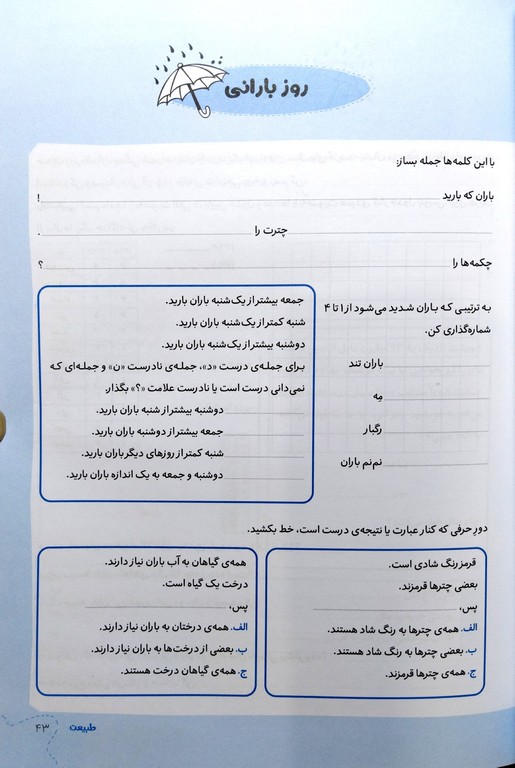 روز بارانی
با این کلمه‌ها جمله بساز:
باران که بارید !
چترت را .
چکمه‌ها را ؟
به ترتیبی که باران شدید می‌شود از ۱ تا ۴
شماره‌گذاری کن.
باران تند
مِه
رگبار
نم‌نم باران
جمعه بیشتر از یک‌شنبه باران بارید.
شنبه کمتر از یک‌شنبه باران بارید.
دوشنبه بیشتر از یک‌شنبه باران بارید.
برای جمله‌ی درست «د»، جمله‌ی نادرست «ن» و جمله‌ای که
نمی‌دانی درست است یا نادرست علامت «؟» بگذار.
دوشنبه بیشتر از شنبه باران بارید.
جمعه بیشتر از دوشنبه باران بارید.
شنبه کمتر از روزهای دیگر باران بارید.
دوشنبه و جمعه به یک اندازه باران بارید.
دورِ حرفی که کنار عبارت یا نتیجه‌ی درست است، خط بکشید.
قرمز رنگ شادی است.
بعضی چترها قرمزند.
پس،
الف. همه‌ی چترها به رنگ شاد هستند.
ب. بعضی چترها به رنگ شاد هستند.
ج. همه‌ی چترها قرمزند.
همه‌ی گیاهان به آب باران نیاز دارند.
درخت یک گیاه است.
پس،
الف. همه‌ی درختان به باران نیاز دارند.
ب. بعضی از درخت‌ها به باران نیاز دارند.
ج. همه‌ی گیاهان درخت هستند.
طبیعت ۴۳